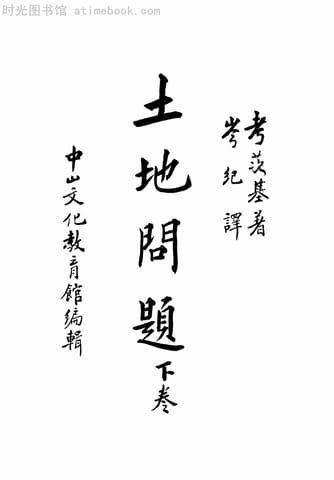 时光图书馆 atimebook.com
考茨基著
岑纪譯
土地問題
下卷
中山文化教育館編輯